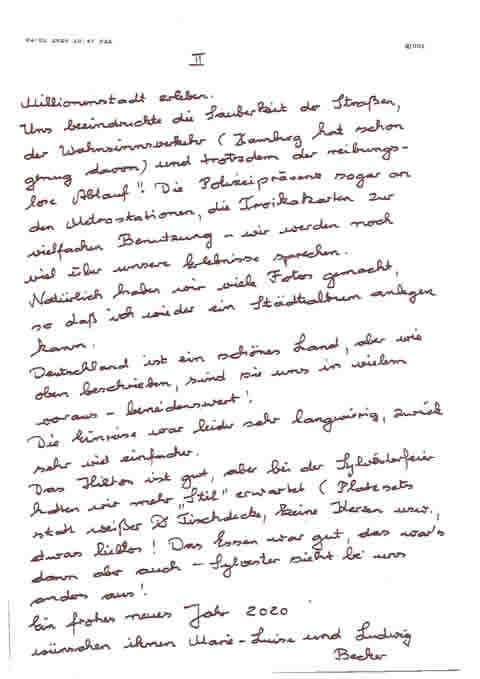 II
Millionenstadt erleben.
Uns beeindruckte die Sauberkeit der Straßen,
der Wahnsinnsverkehr (Hamburg hat schon
genug davon) und trotzdem der reibungs-
lose Ablauf! Die Polizeipräsens sogar an
den Metrostationen, die Troikakarten zur
vielfachen Benutzung - wir werden noch
viel über unsere Erlebnisse sprechen.
Natürlich haben wir viele Fotos gemacht,
so daß ich wieder ein Städtealbum anlegen
kann.
Deutschland ist ein schönes Land, aber wie
oben beschrieben, sind sie uns in vielem
voraus - beneidenswert!
Die Einreise war leider sehr langwierig, zurück
sehr viel einfacher.
Das Hilton ist gut, aber bei der Sylvesterfeier
hatten wir mehr "Stil" erwartet (Platzsets
statt weißer Tischdecke, keine Kerzen usw.,
etwas lieblos! Das Essen war gut, das war's
dann aber auch - Sylvester sieht bei uns
anders aus!
Ein frohes neues Jahr 2020
wünschen ihnen Marie-Luise und Ludwig
Becker